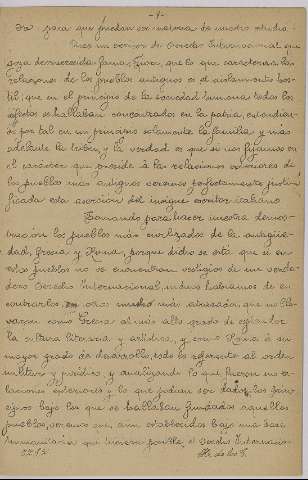 -4-
para que puedan ser materia de nuestro estudio.
Dice un escritor de Derecho Internacional que
goza de merecida fama, Fiore, que lo que caracteriza las
relaciones de los pueblos antiguos es el aislamiento hos-
til; que en el principio de la sociedad humana todos los
afectos se hallaban concentrados en la patria, entendién-
dose por tal en un principio solamente la familia y mas
adelante la tribu; y la verdad es que si nos fijamos en
el caracter que preside á las relaciones exteriores de
los pueblos mas antiguos veremos perfectamente justi-
ficada esta asercion del insigne escritor italiano.
Tomando para hacer nuestra demos-
tracion los pueblos más civilizados de la antigüe-
dad, Grecia y Roma, porque dicho se está que si en
estos pueblos no se encuentran vestigios de un verda-
dero Derecho Internacional, menos habriamos de en-
contrarlos en otros mas atrasados, que no lle-
varon como Grecia al más alto grado de esplendor
la cultura literaria y artística, y como Roma á su
mayor grado de desarrollo, todo lo referente al orden
militar y jurídico y analizando lo que fueron sus re-
laciones exteriores y lo que podian ser dados los prin-
cipios bajo los que se hallaban fundados aquellos
pueblos, veremos que, aun establecidos bajo una base
humanitaria que hiciera posible, el Derecho Internacio-